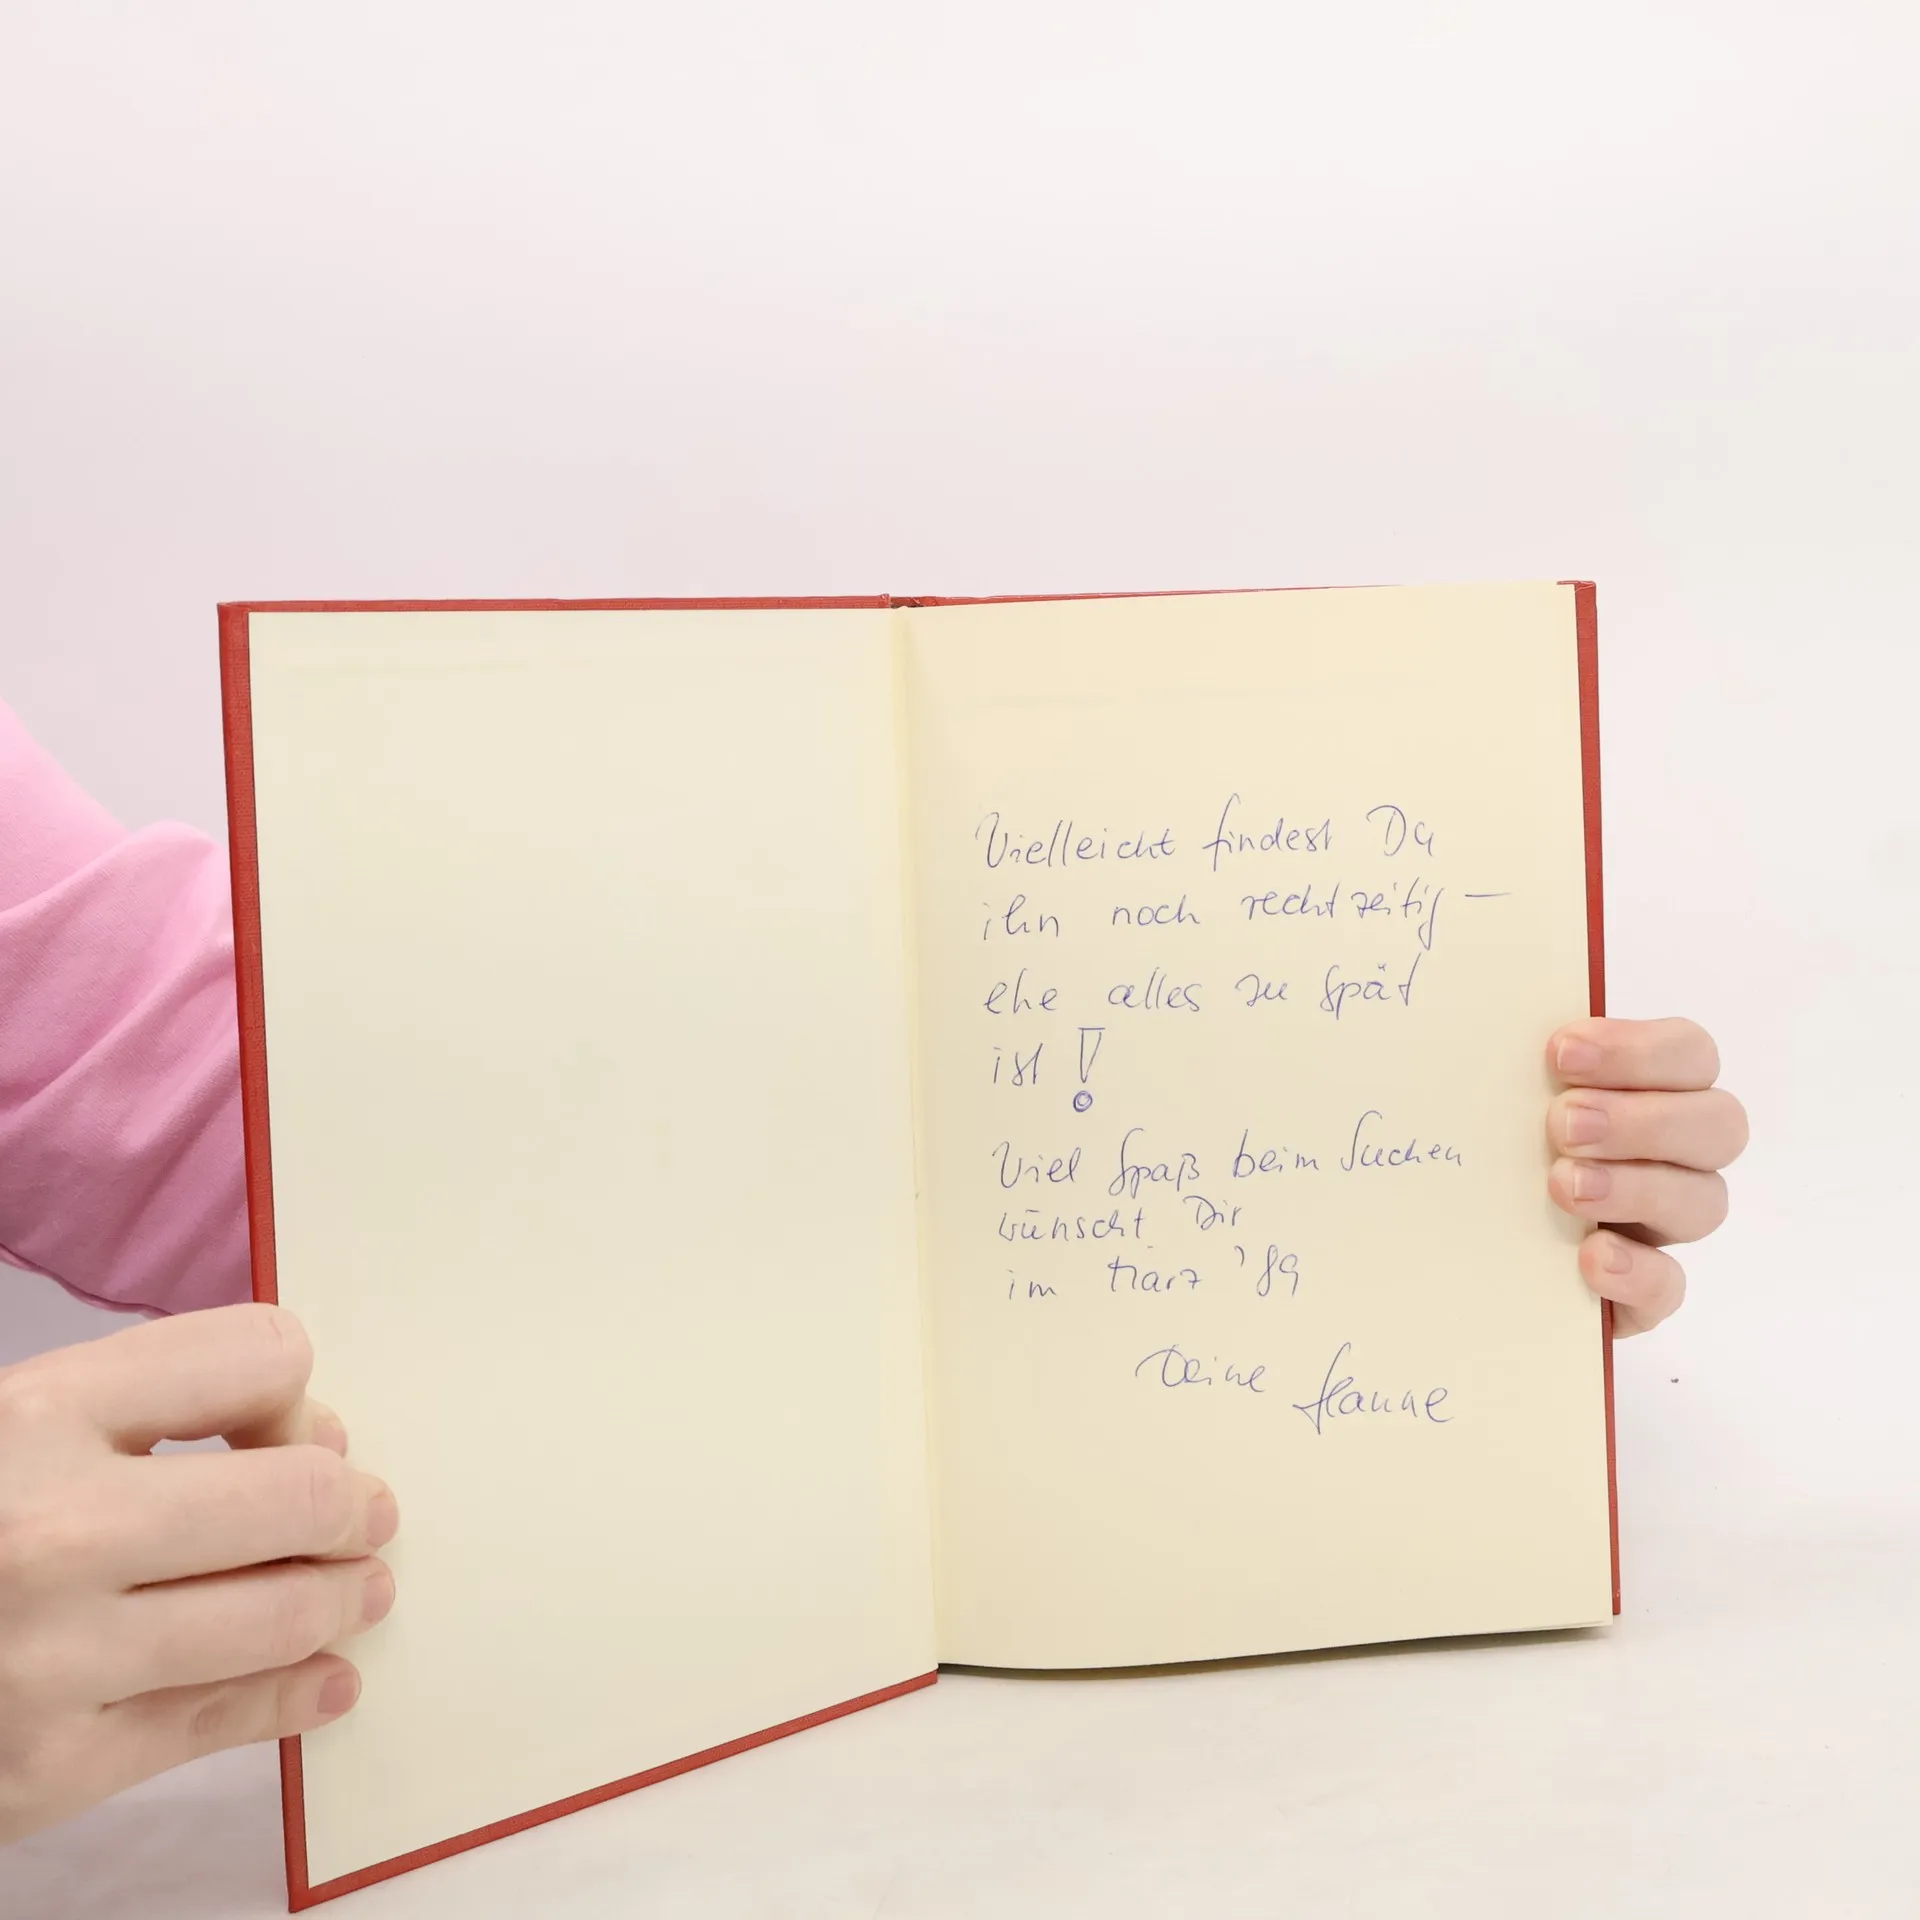 Vielleicht findest Du
ihn noch rechtzeitig —
ehe alles zu spät
ist !
Viel Spaß beim Suchen
wünscht Dir
im März '89
Deine Hanne